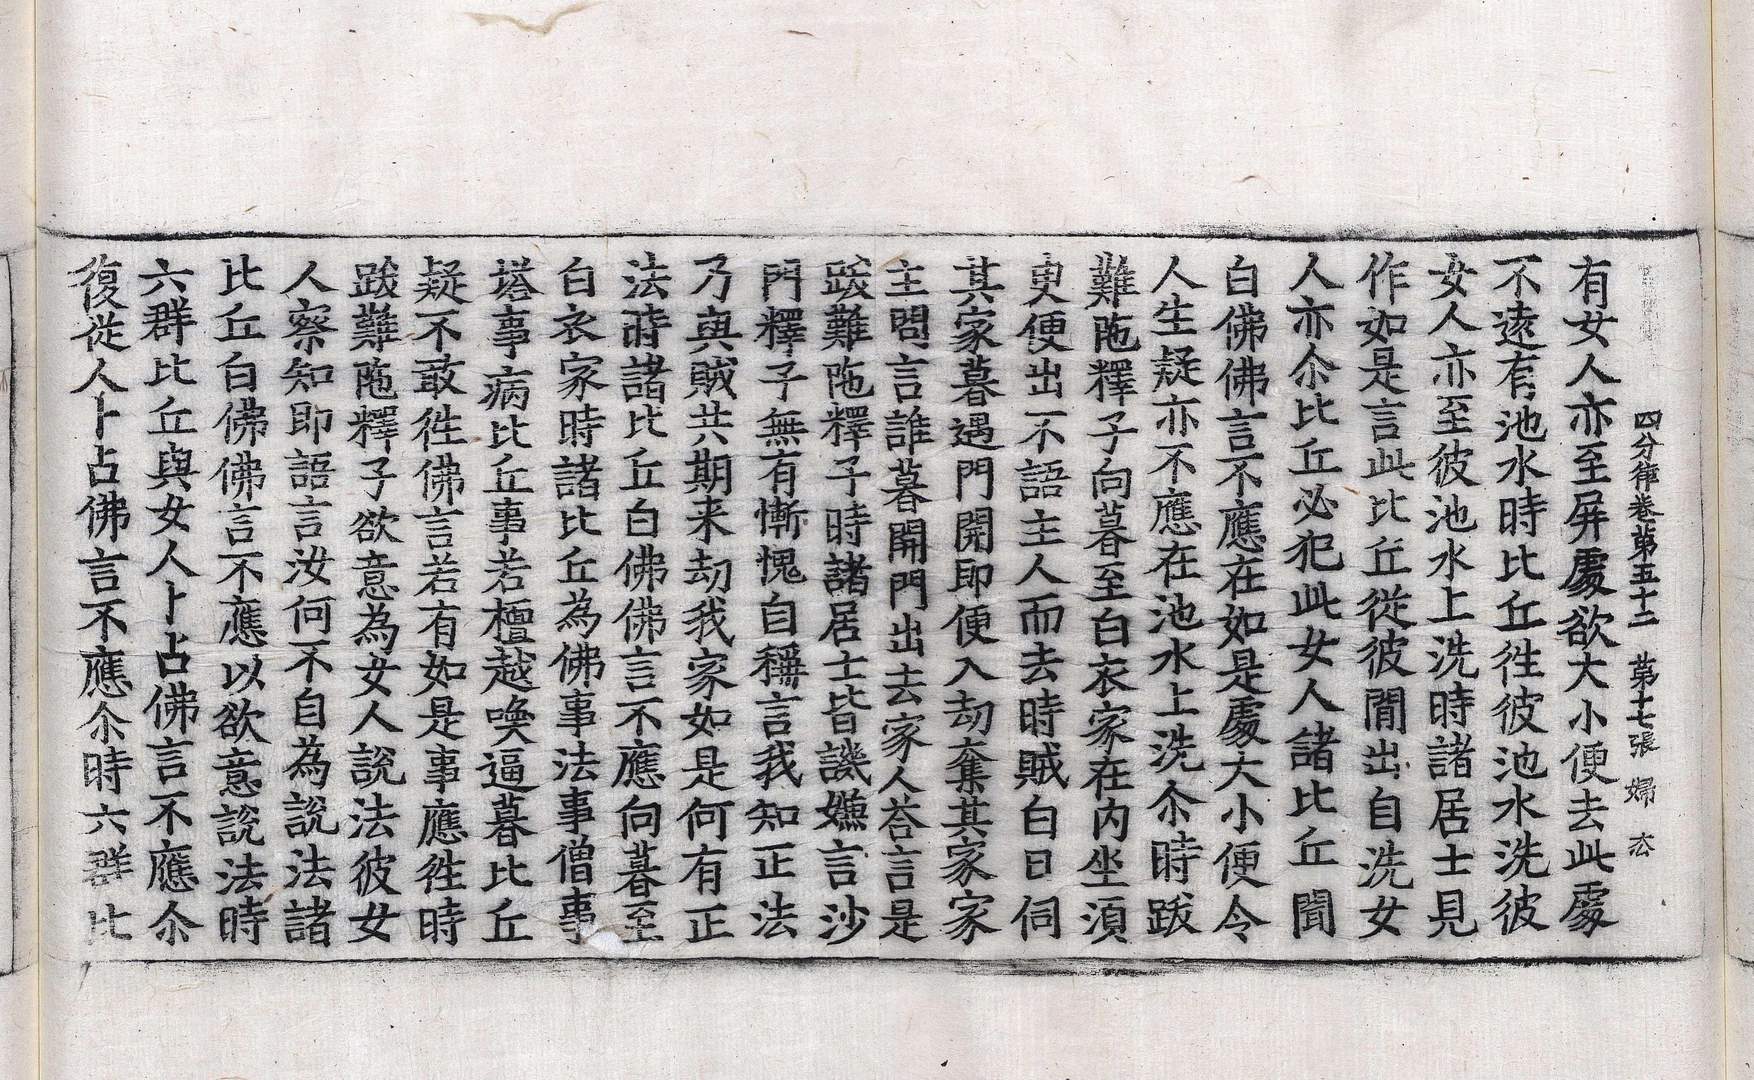 四分律卷第五十二　第十七張　婦　厺
有女人亦至屏䖏欲大小便去此䖏
不遠有池水時比丘徃彼池水洗彼
女人亦至彼池水上洗時諸居士見
作如是言此比丘從彼閒出自洗女
人亦尒比丘必犯此女人諸比丘聞
白佛佛言不應在如是䖏大小便令
人生疑亦不應在池水上洗尒時跋
難陁釋子向暮至白衣家在内坐須
㬰便出不語主人而去時賊白日伺
其家暮遇門開即便入劫奪其家家
主問言誰暮開門出去家人荅言是
跋難陁釋子時諸居士皆譏嫌言沙
門釋子無有慚愧自稱言我知正法
乃與賊共期来劫我家如是何有正
法時諸比丘白佛佛言不應向暮至
白衣家時諸比丘為佛事法事僧事
塔事病比丘事若檀越喚逼暮比丘
疑不敢徃佛言若有如是事應徃時
跋難陁釋子欲意為女人說法彼女
人察知即語言汝何不自為說法諸
比丘白佛佛言不應以欲意說法時
六群比丘與女人卜占佛言不應尒
復從人卜占佛言不應尒時六群比